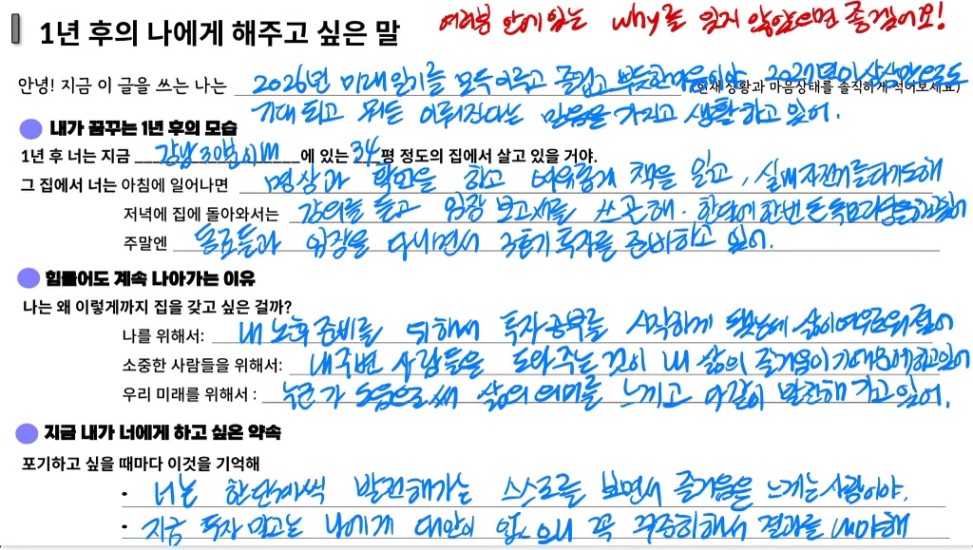 1년 후의 나에게 해주고 싶은 말
여러분 안에 있는 why를 잊지 않았으면 좋겠어요!
안녕! 지금 이 글을 쓰는 나는 2026년 미래일기를 모두 이루고 즐겁고 뿌듯한 마음이야. 2027년이 상상만으로도
(현재 상황과 마음상태를 솔직하게 적어보세요)
기대되고 뭐든 이뤄진다는 믿음을 가지고 생활하고 있어.
내가 꿈꾸는 1년 후의 모습
1년 후 너는 지금 강남 에 있는 34평 정도의 집에서 살고 있을 거야.
그 집에서 너는 아침에 일어나면 명상과 확언을 하고 여유롭게 책을 읽고, 실내자전거를 타기도 해
저녁에 집에 돌아와서는 강의를 듣고 임장 보고서를 쓰곤 해. 한달에 한번 돈독모
주말엔 동료들과 임장을 다니면서 3호기 투자를 준비하고 있어.
힘들어도 계속 나아가는 이유
나는 왜 이렇게까지 집을 갖고 싶은 걸까?
나를 위해서: 내 노후준비를 위해서 투자공부를 시작하게 됐는데 삶이
소중한 사람들을 위해서: 내 주변 사람들을 도와주는 것이 내 삶의 즐거움이
우리 미래를 위해서 : 누군가 도움으로써 삶의 의미를 느끼고 다같이 발전해 가고 있어.
지금 내가 너에게 하고 싶은 약속
포기하고 싶을 때마다 이것을 기억해
• 너는 한단계씩 발전해가는 스스로를 보면서 즐거움을 느끼는 사람이야.
• 지금 투자 말고는 나에게 대안이 없으니 꼭 꾸준히해서 결과를 내야해